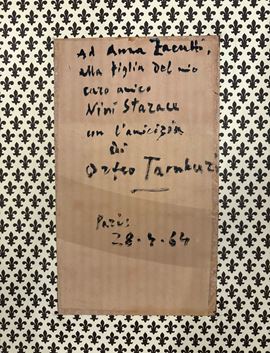 Ad Anna Zacutti,
alla figlia del mio
caro amico
Nini Starace
con l'amicizia
di
Orfeo Tamburi
Paris
28-4-64